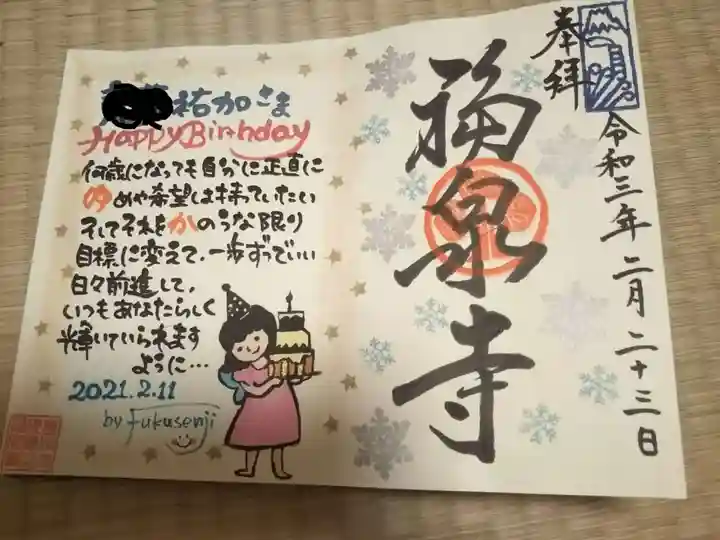 祐加さま
Happy Birthday
何歳になっても自分に正直に
ゆめや希望は持っていたい
そしてそれをかのうな限り
目標に変えて、一歩ずつでいい
日々前進して、
いつもあなたらしく
輝いていられます
ように…
2021.2.11
by Fukusenji
奉拝
福泉寺
令和三年二月二十三日